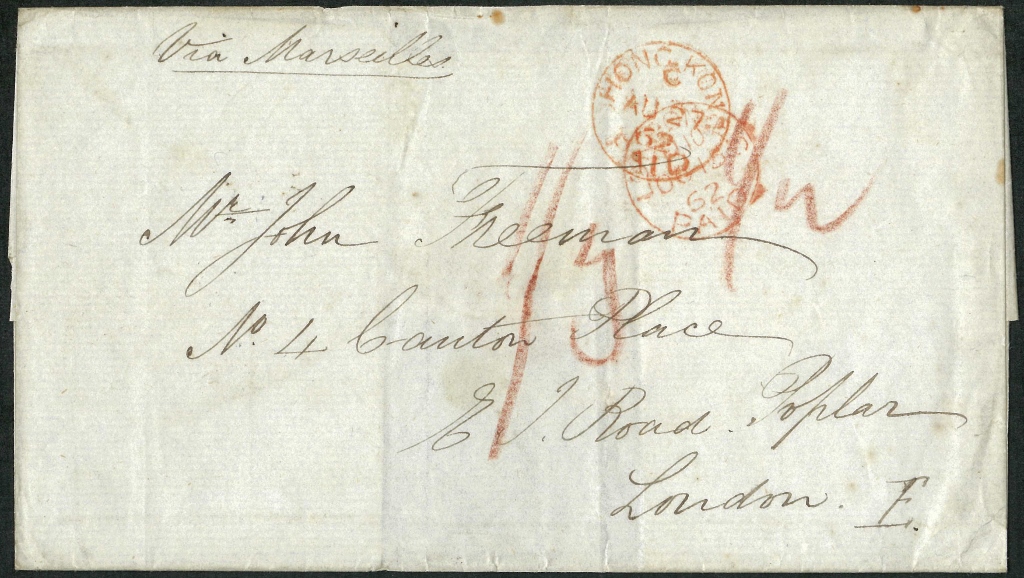 Via Marseilles
HONG KONG
C
AU 27
62
PAID
62
PAID
Mr. John Freeman
No. 4 Canton Place
E I. Road. Poplar
London. E.